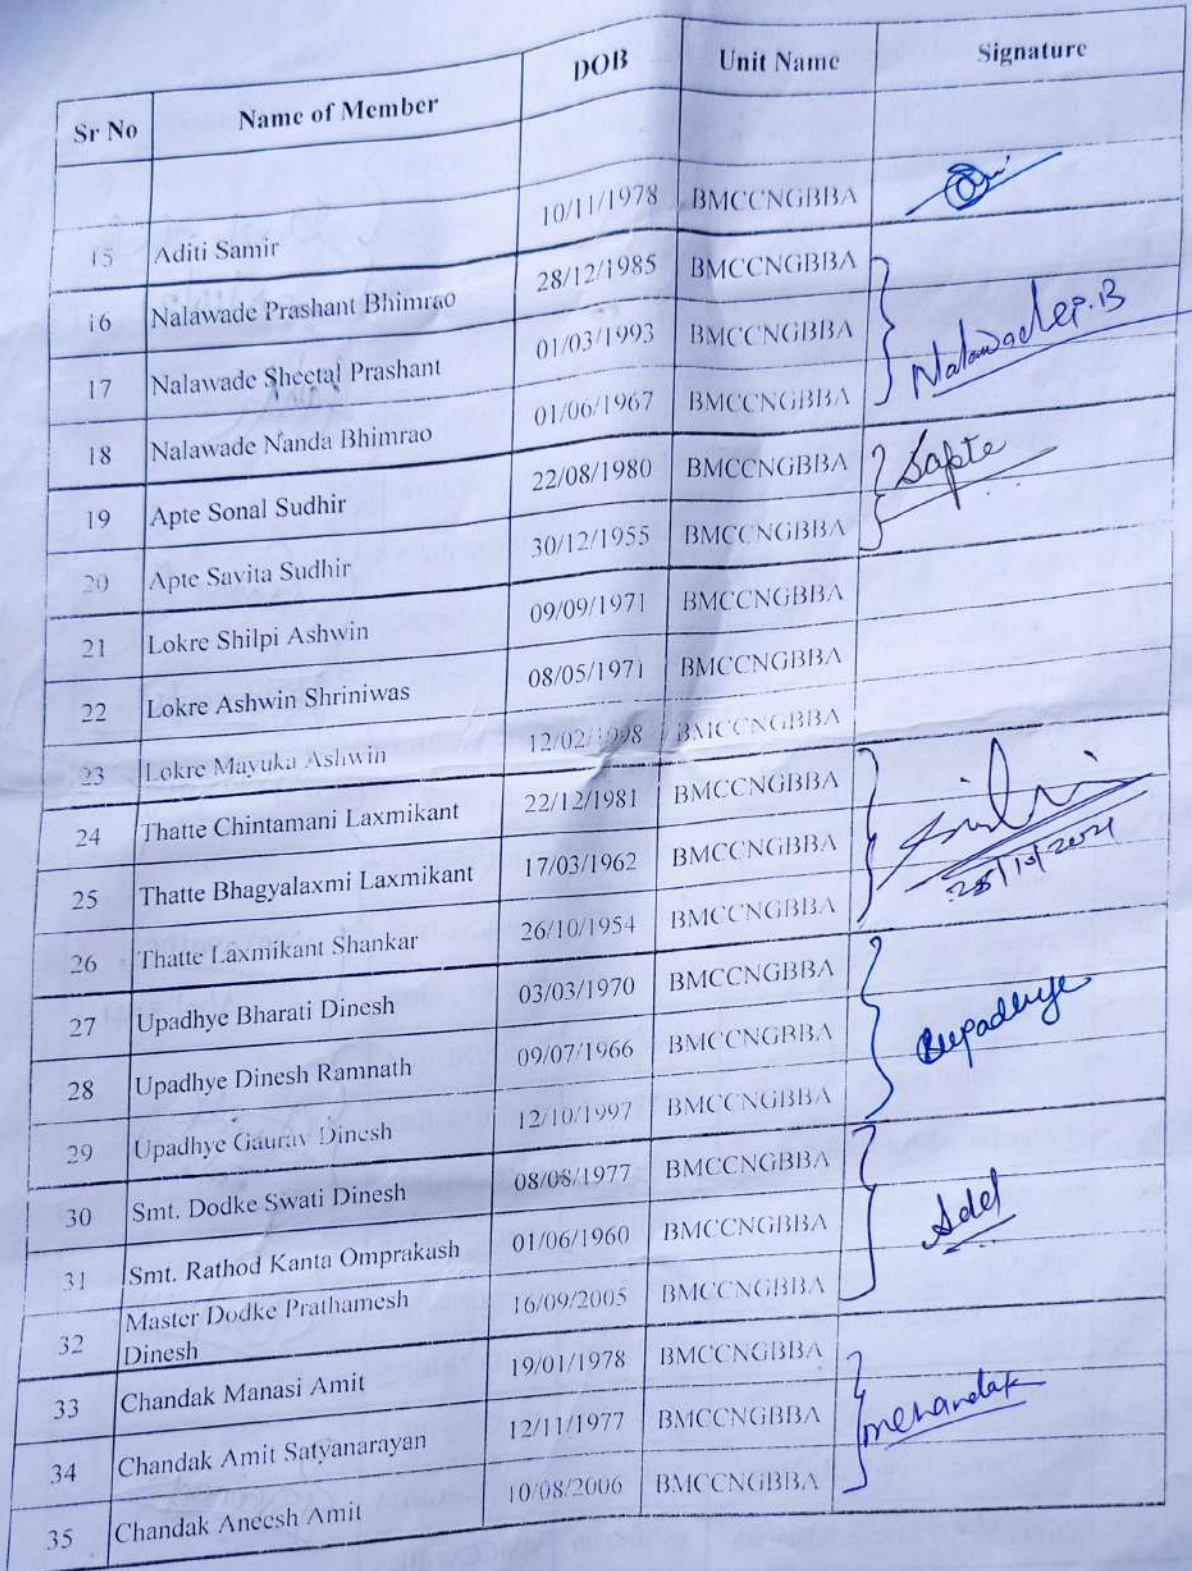 Sr No Name of Member DOB Unit Name Signature
15 Aditi Samir 10/11/1978 BMCCNGBBA
16 Nalawade Prashant Bhimrao 28/12/1985 BMCCNGBBA
17 Nalawade Sheetal Prashant 01/03/1993 BMCCNGBBA Nalawade P.B
18 Nalawade Nanda Bhimrao 01/06/1967 BMCCNGBBA
19 Apte Sonal Sudhir 22/08/1980 BMCCNGBBA Sapte
20 Apte Savita Sudhir 30/12/1955 BMCCNGBBA
21 Lokre Shilpi Ashwin 09/09/1971 BMCCNGBBA
22 Lokre Ashwin Shriniwas 08/05/1971 BMCCNGBBA
23 Lokre Mayuka Ashwin 12/02/1998 BMCCNGBBA
24 Thatte Chintamani Laxmikant 22/12/1981 BMCCNGBBA
25 Thatte Bhagyalaxmi Laxmikant 17/03/1962 BMCCNGBBA
26 Thatte Laxmikant Shankar 26/10/1954 BMCCNGBBA
27 Upadhye Bharati Dinesh 03/03/1970 BMCCNGBBA
28 Upadhye Dinesh Ramnath 09/07/1966 BMCCNGBBA Bupadhye
29 Upadhye Gaurav Dinesh 12/10/1997 BMCCNGBBA
30 Smt. Dodke Swati Dinesh 08/08/1977 BMCCNGBBA
31 Smt. Rathod Kanta Omprakash 01/06/1960 BMCCNGBBA
32 Master Dodke Prathamesh 16/09/2005 BMCCNGBBA
Dinesh
33 Chandak Manasi Amit 19/01/1978 BMCCNGBBA
34 Chandak Amit Satyanarayan 12/11/1977 BMCCNGBBA mchandak
35 Chandak Aneesh Amit 10/08/2006 BMCCNGBBA